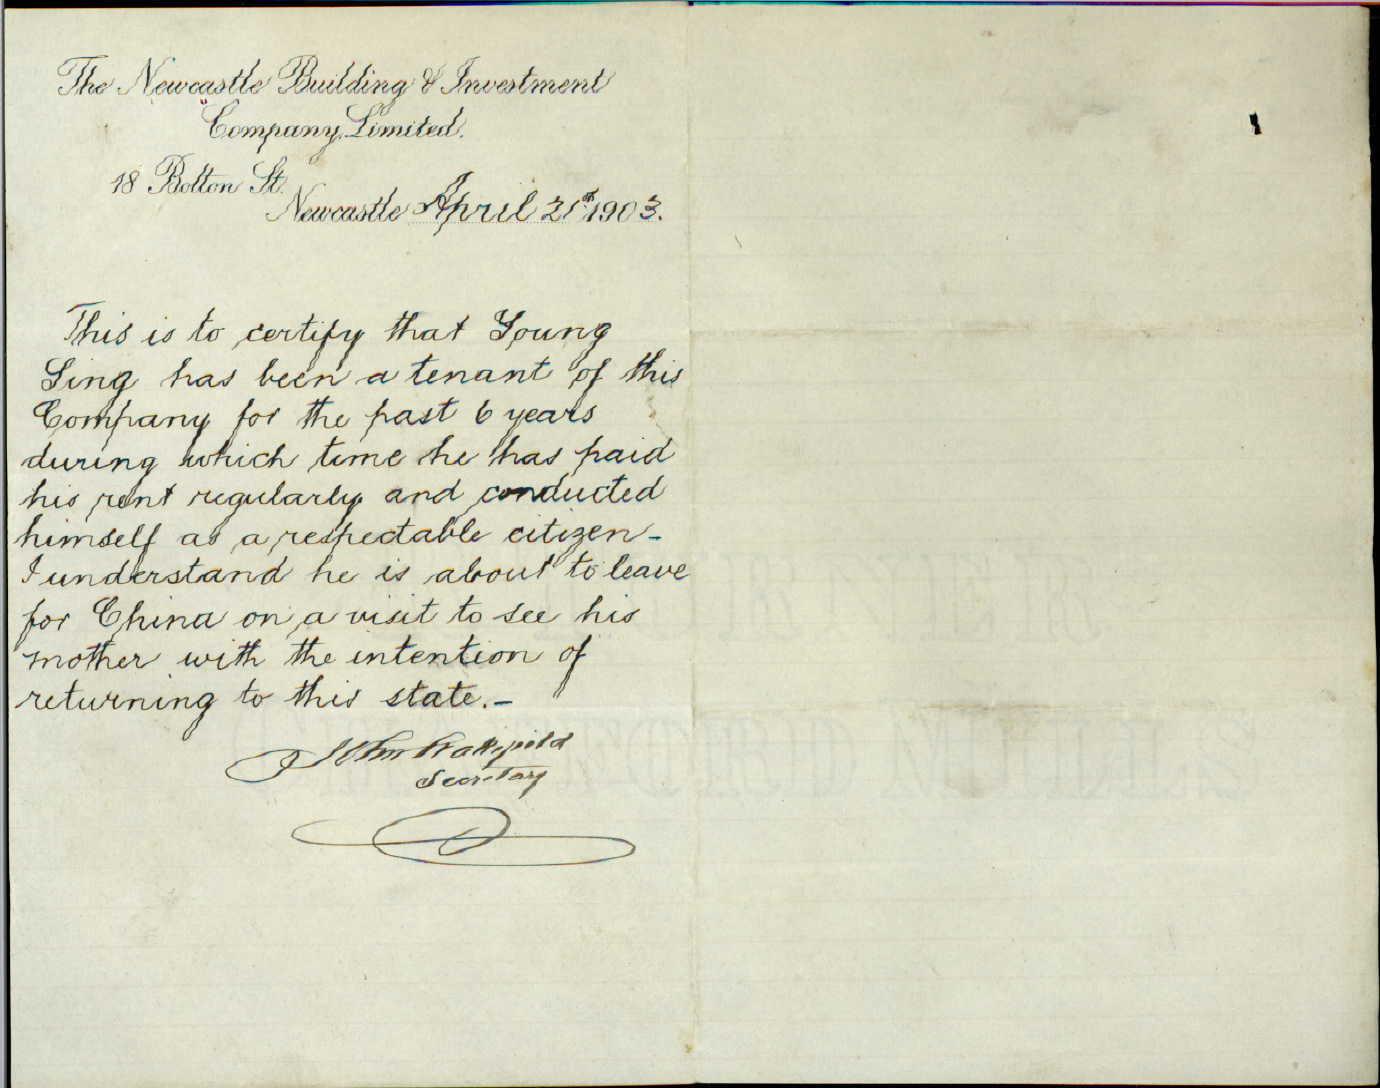 The Newcastle Building & Investment
Company, Limited.
18 Bolton St.
Newcastle April 21st 1903.
This is to certify that Young
Sing has been a tenant of this
Company for the past 6 years
during which time he has paid
his rent regularly and conducted
himself as a respectable citizen -
I understand he is about to leave
for China on a visit to see his
mother with the intention of
returning to this state. -
John
Secretary